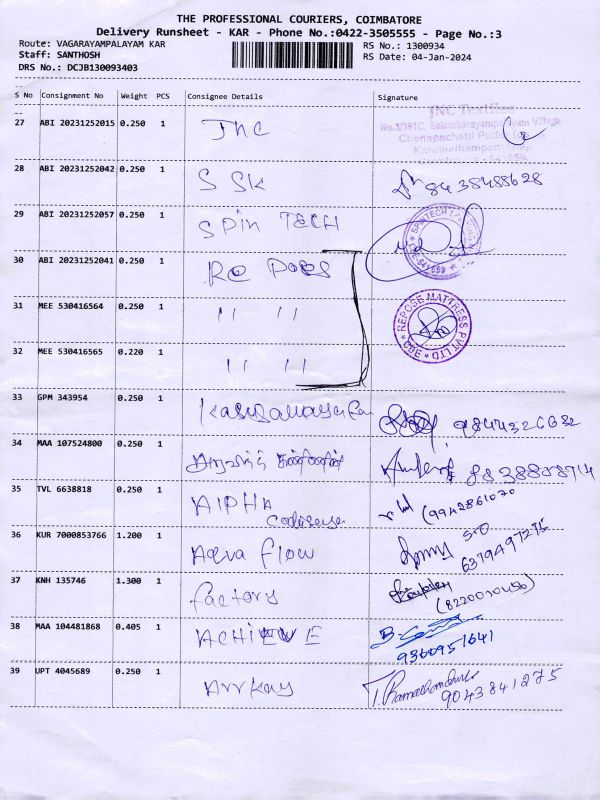 THE PROFESSIONAL COURIERS, COIMBATORE
Delivery Runsheet - KAR - Phone No.:0422-3505555 - Page No.:3
Route: VAGARAYAMPALAYAM KAR RS No.: 1300934
Staff: SANTHOSH RS Date: 04-Jan-2024
DRS No.: DCJB130093403
S No Consignment No Weight PCS Consignee Details Signature
JNC Textiles
27 ABI 20231252015 0.250 1 Jnc
28 ABI 20231252042 0.250 1 S SK 8438488628
29 ABI 20231252057 0.250 1 SPin TECH
30 ABI 20231252041 0.250 1
31 MEE 530416564 0.250 1 11 11 REPOSE MATTRESS PVT LTD CBE
32 MEE 530416565 0.220 1 11 11
33 GPM 343954 0.250 1
34 MAA 107524800 0.250 1
35 TVL 6638818 0.250 1 AlPHA (9942861070
36 KUR 7000853766 1.200 1 Aqva flow 6379497275
37 KNH 135746 1.300 1 factory
38 MAA 104481868 0.405 1 ACHIEVE 9360951641
39 UPT 4045689 0.250 1 Arrkay 9043841275